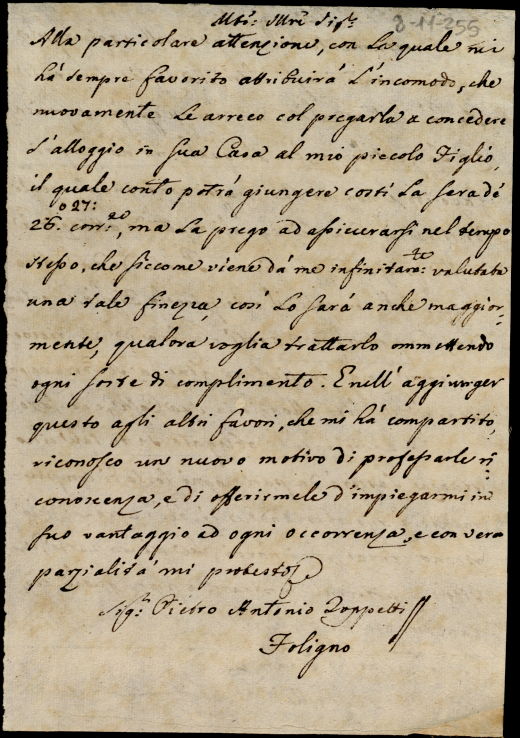 Mto: Illre Sigre 8-11-255
Alla particolare attenzione, con la quale mi
há sempre favorito attribuirá l'incomodo, che
nuovamente Le arreco col pregarla a concedere
l'alloggio in sua Casa al mio piccolo Figlio,
il quale conto potrá giungere costí la sera de
o 27:
26. corr:te, ma La prego ad assicurarsi nel tempo
stesso, che siccome viene dá me infinitam:te valutata
una tale finezza cosí Lo sará anche maggior-
mente, qualora voglia trattarlo ommettendo
ogni sorte di complimento. E nell' aggiunger
questo agli altri favori, che mi há compartito,
riconosco un nuovo motivo di professarle ri
conoscenza, e di offerirmele d'impiegarmi in
suo vantaggio ad ogni occorrenza, e con vera
parzialitá mi protesto
Sigre Pietro Antonio Zoppetti
Foligno